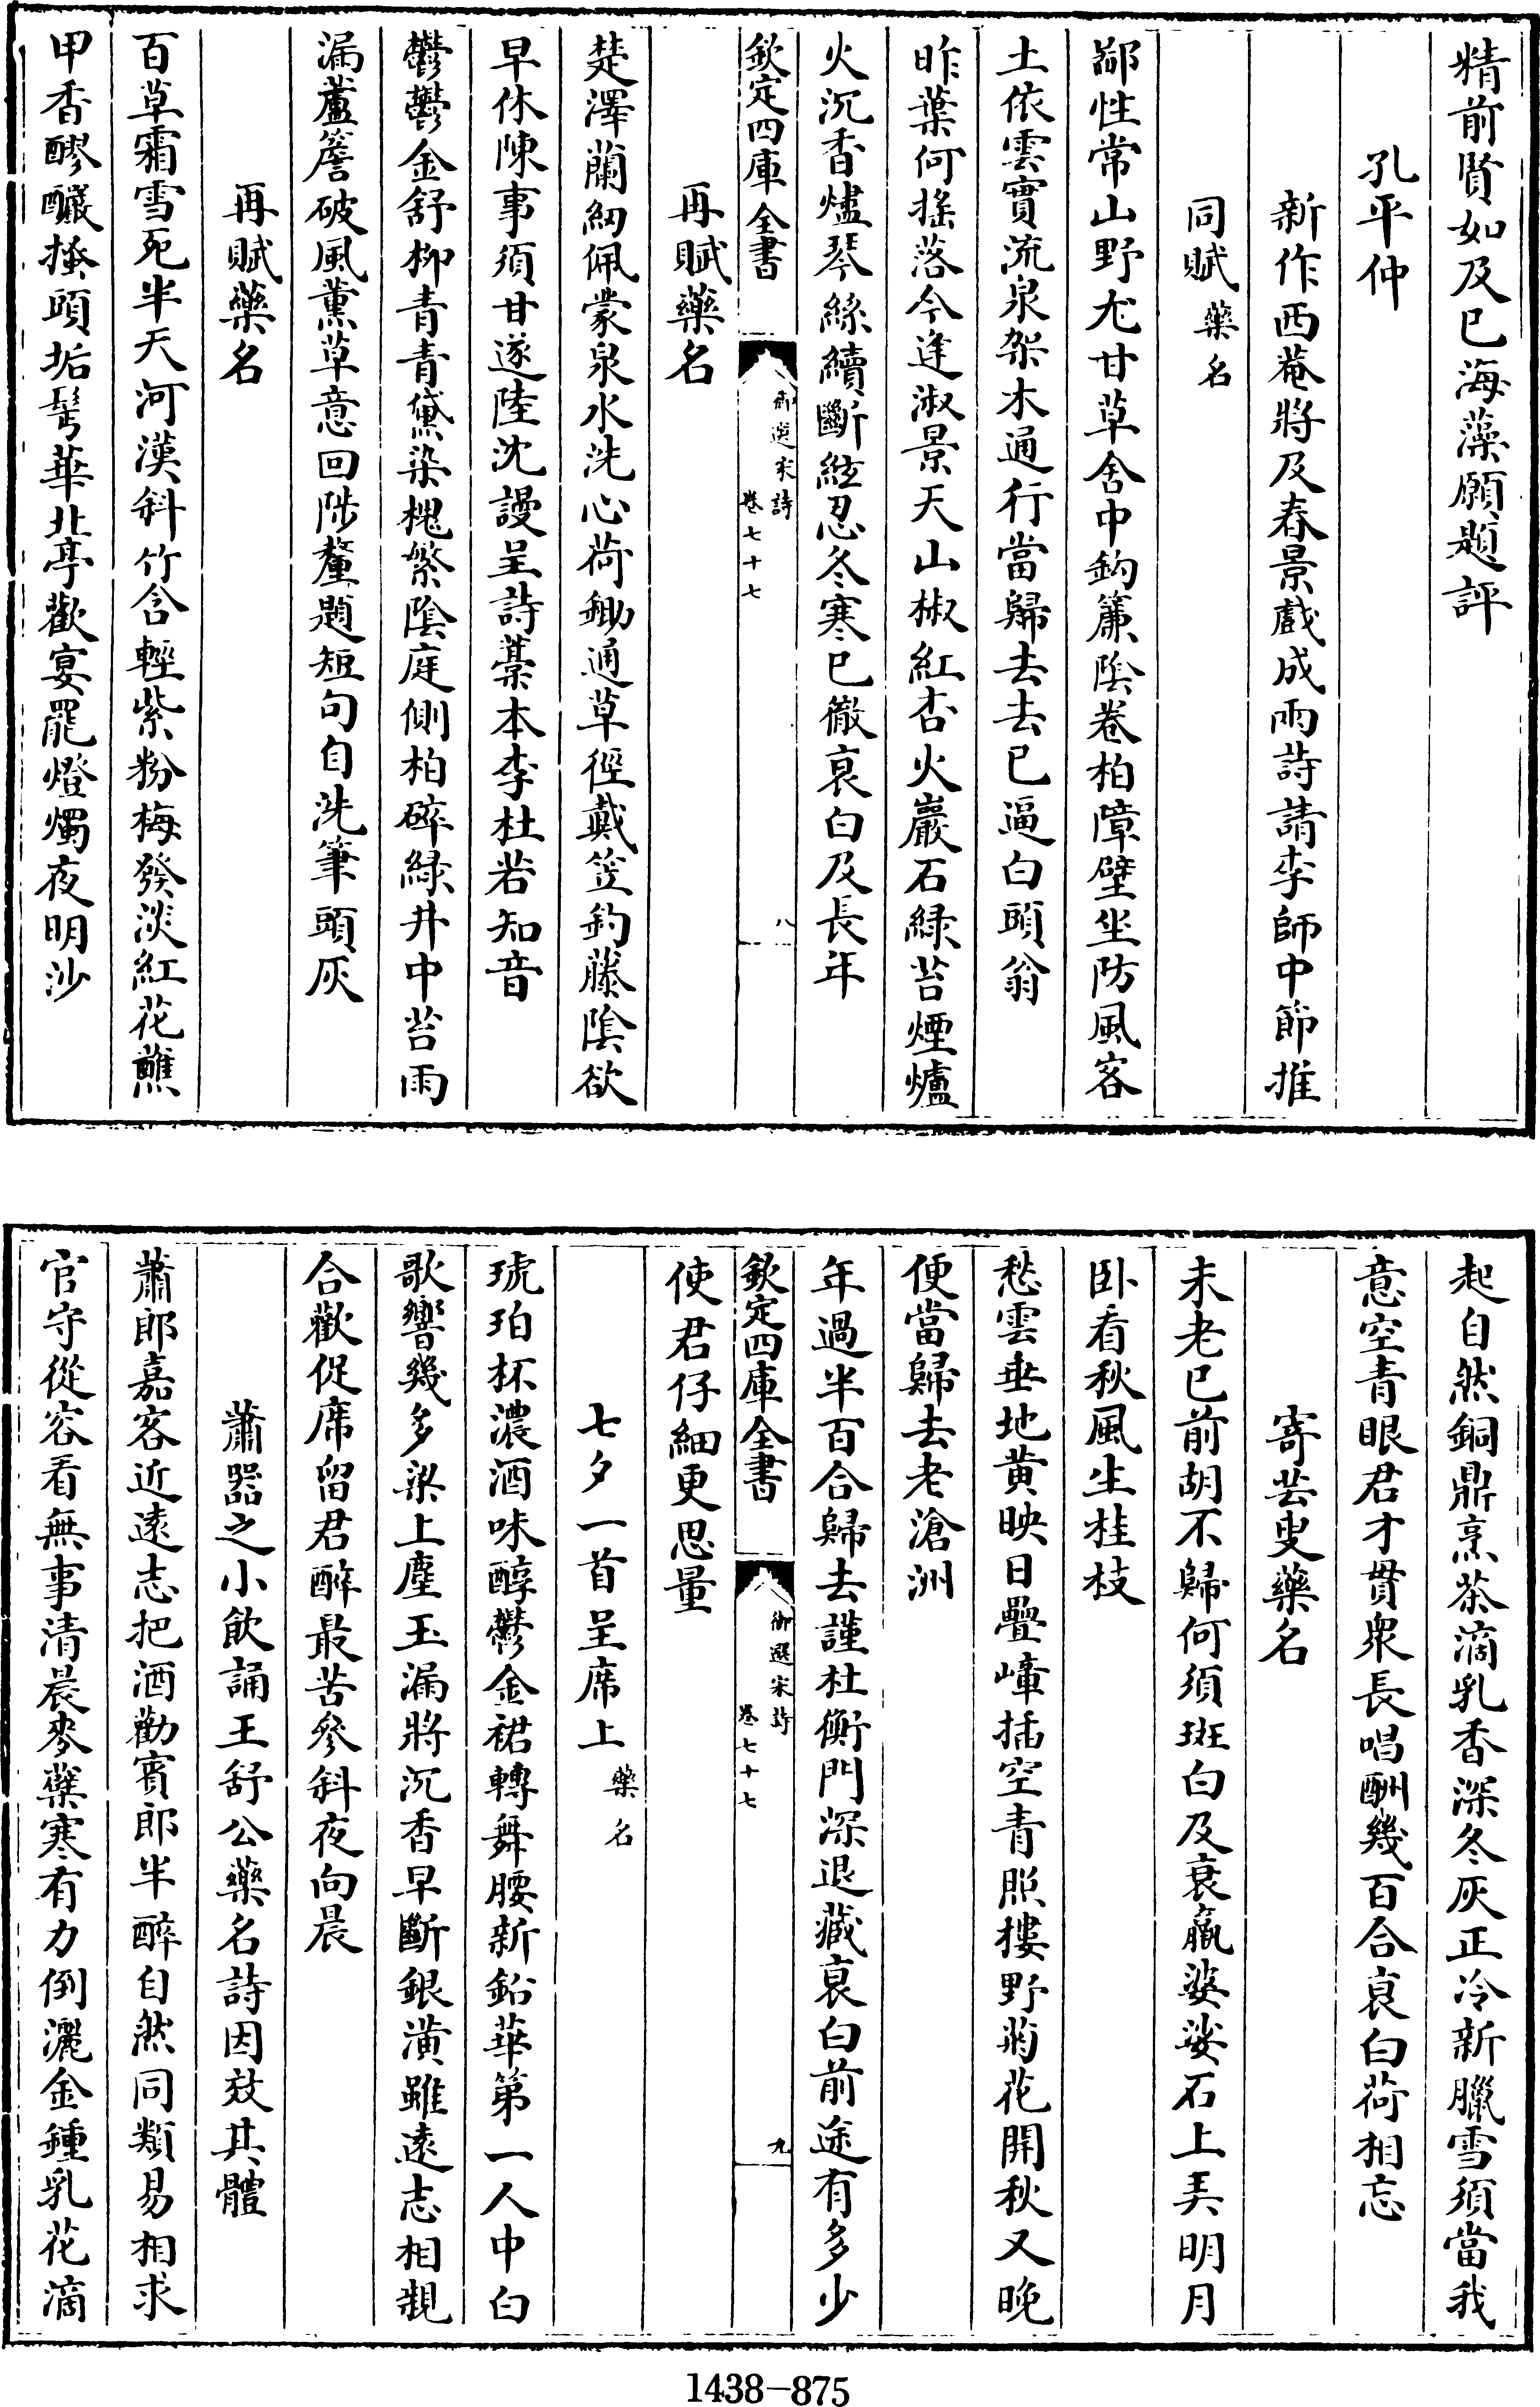 精前賢如及已海藻願題評
孔平仲
新作西菴將及春景戲成兩詩請李師中節推
同賦藥名
鄙性常山野尤甘草舍中鈎簾陰卷柏障壁坐防風客
土依雲實流泉架木通行當歸去去已逼白頭翁
昨葉何搖落今逢淑景天山椒紅杏火巖石緑苔煙爐
火沉香燼琴絲續斷絃忍冬寒已徹裒白及長年
欽定四庫全書
御選宋詩
卷七十七
八
再賦藥名
楚澤蘭紉佩蒙泉水洗心荷鋤通草徑戴笠釣藤陰欲
早休陳事須甘遂陸沈謾呈詩藁本李杜若知音
鬱鬱金舒柳青青黛染槐繁陰庭側柏碎緑井中苔雨
漏蘆簷破風薰草意回陟釐題短句自洗筆頭灰
再賦藥名
百草霜雪死半天河漢斜竹含輕紫粉梅發淡紅花蘸
甲香醪釅搔頭垢髩華北亭歡宴罷燈燭夜明沙
起自然銅鼎烹茶滴乳香深冬灰正冷新臘雪須當我
意空青眼君才貫衆長唱酬幾百合裒白荷相忘
寄芸叟藥名
未老已前胡不歸何須斑白及衰羸婆娑石上弄明月
卧看秋風生桂枝
愁雲垂地黄映日疊嶂插空青照樓野菊花開秋又晚
便當歸去老滄洲
年過半百合歸去謹杜衡門深退藏裒白前途有多少
欽定四庫全書
御選宋詩
卷七十七
九
使君仔細更思量
七夕一首呈席上藥名
琥珀杯濃酒味醇鬱金裙轉舞腰新鉛華第一人中白
歌響幾多梁上塵玉漏將沉香早斷銀潢雖遠志相親
合歡促席留君醉最苦參斜夜向晨
蕭器之小飲誦王舒公藥名詩因效其體
蕭郎嘉客近遠志把酒勸賓郎半醉自然同類易相求
官守從容看無事清晨麥蘖寒有力倒灑金鍾乳花滴
1438-875